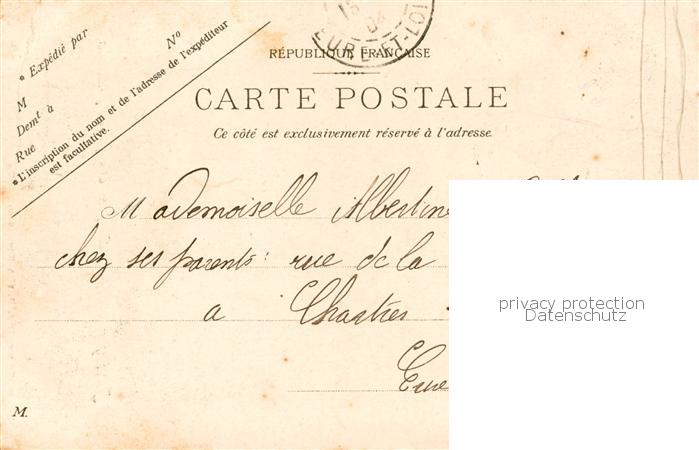 15
04
EURE-ET-LOI
RÉPUBLIQUE FRANÇAISE
CARTE POSTALE
Ce côté est exclusivement réservé à l'adresse.
* Expédié par
Nº
M
Demt à
Rue
*L'inscription du nom et de l'adresse de l'expéditeur
est facultative.
Mademoiselle Albertine
chez ses parents: rue de la
a Chartres
Eure
privacy protection
Datenschutz
M.